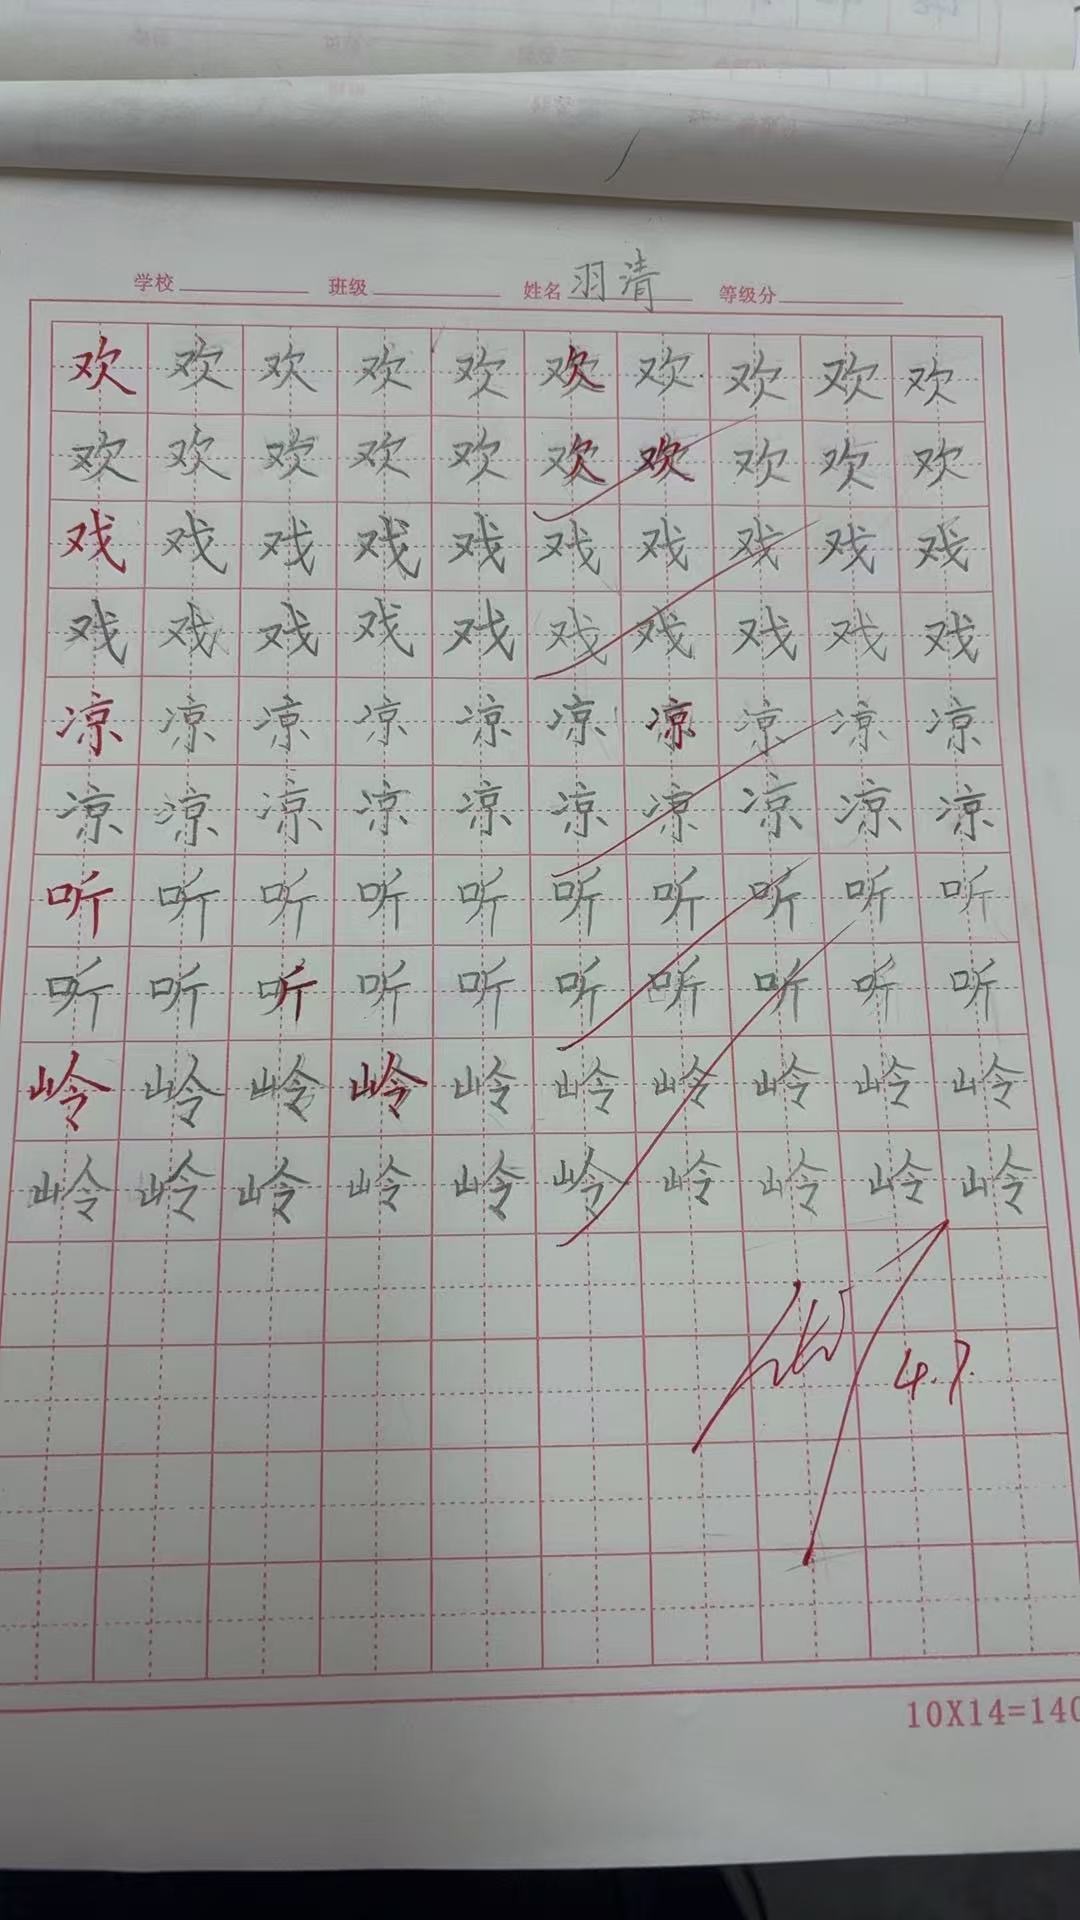 学校 班级 姓名 羽清 等级分
欢欢欢欢欢欢欢欢欢欢
欢欢欢欢欢欢欢欢欢欢
戏戏戏戏戏戏戏戏戏戏
戏戏戏戏戏戏戏戏戏戏
凉凉凉凉凉凉凉凉凉凉
凉凉凉凉凉凉凉凉凉凉
听听听听听听听听听听
听听听听听听听听听听
岭岭岭岭岭岭岭岭岭岭
岭岭岭岭岭岭岭岭岭岭
4.7.
10X14=140